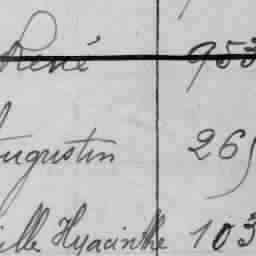 René 953
Augustin 265
ille Hyacinthe 103